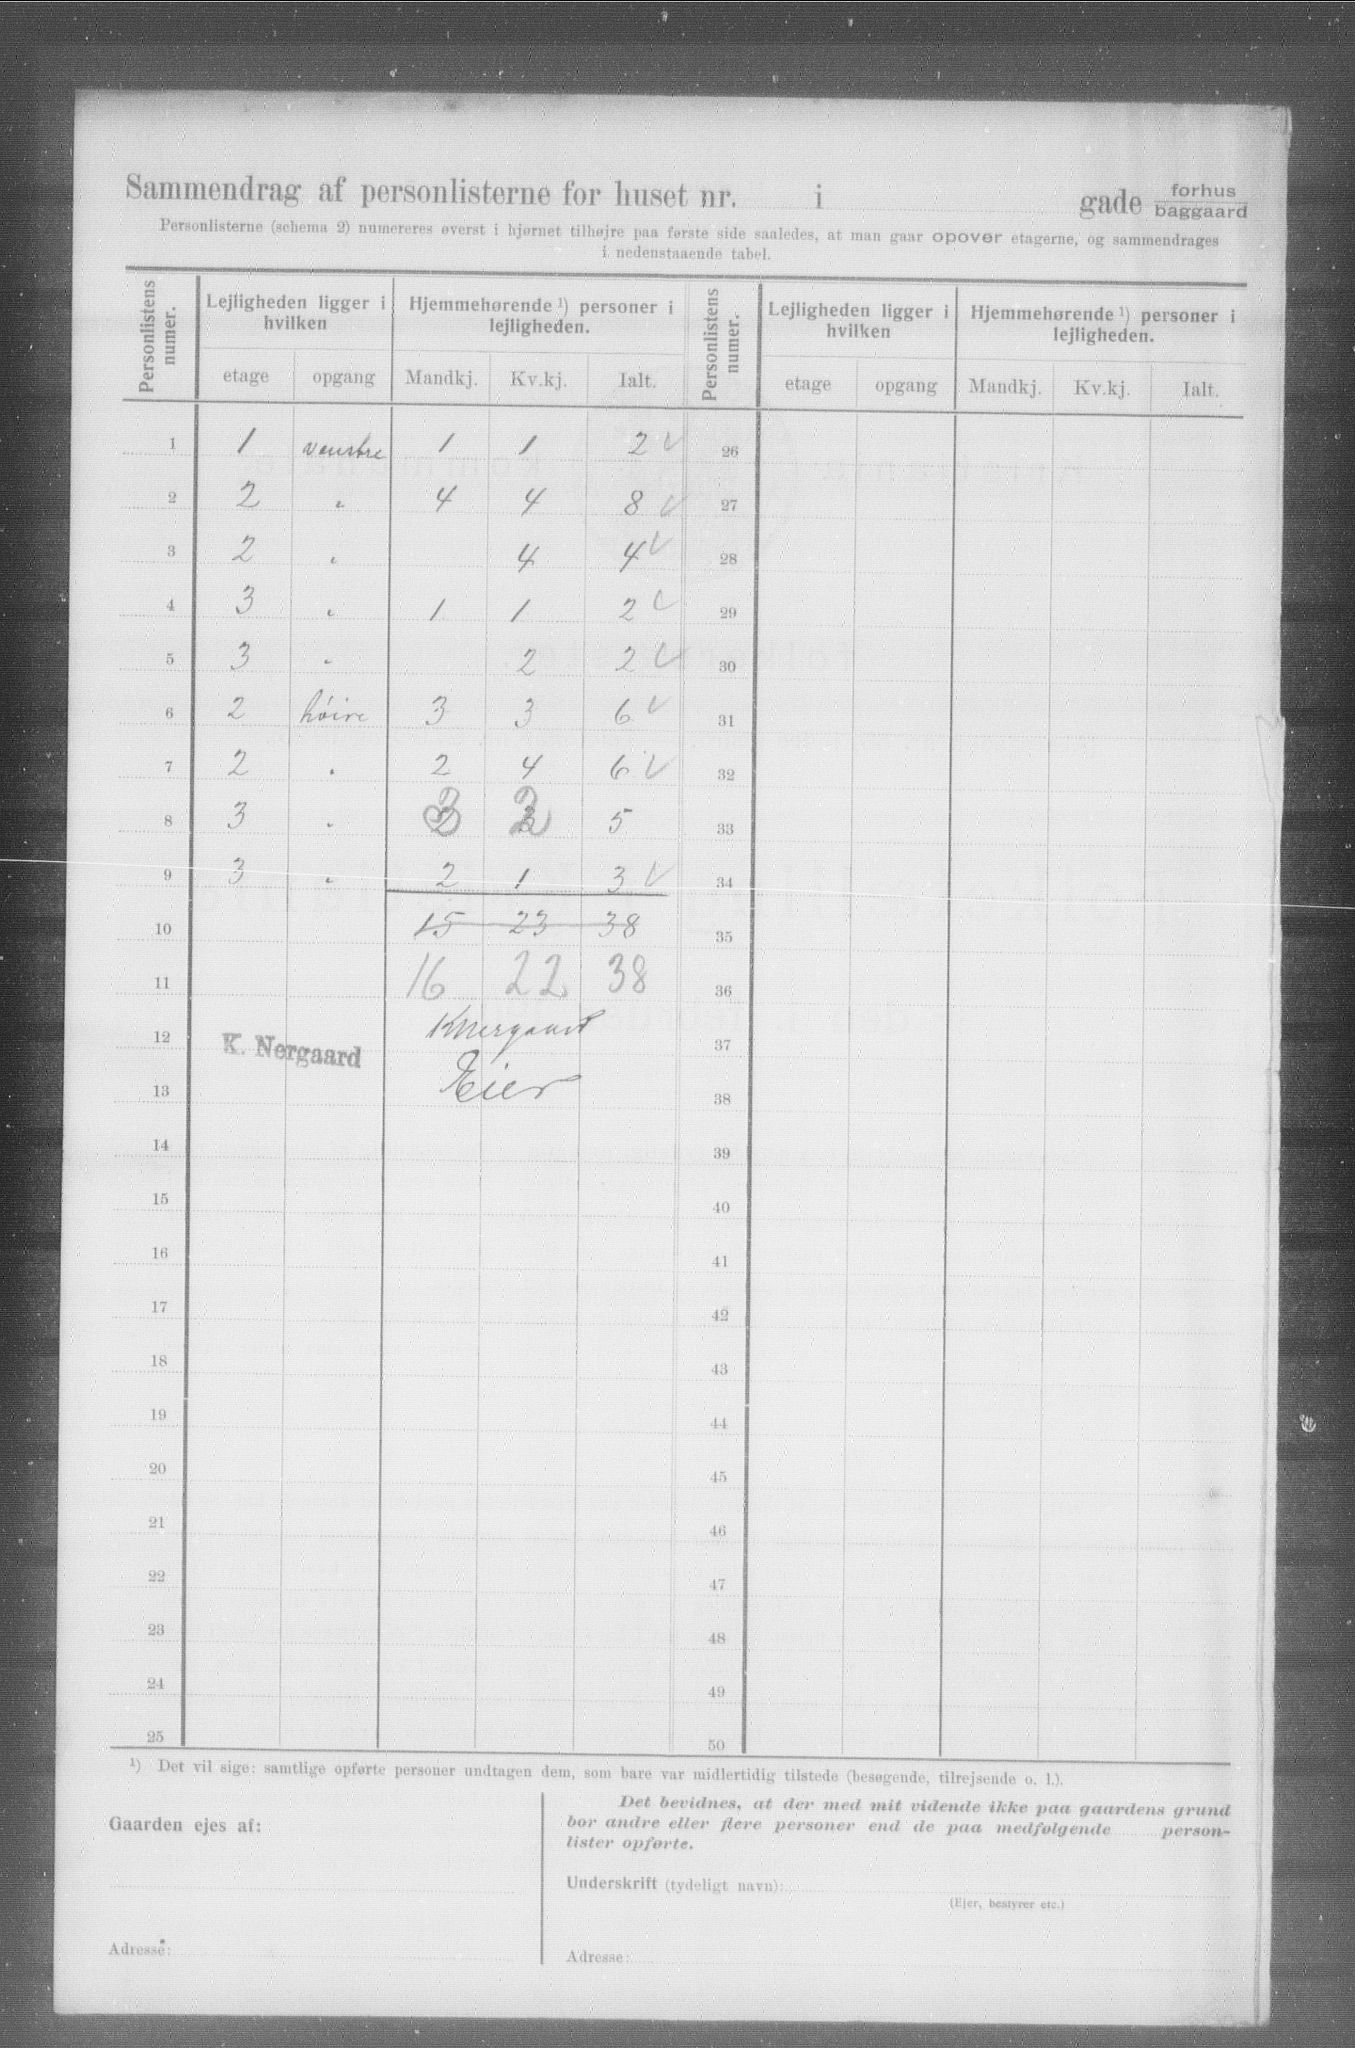 Sammendrag af personlisterne for huset nr. i gade forhus
baggaard
Personlisterne (schema 2) numereres øverst i hjørnet tilhøjre paa første side saaledes, at man gaar opover etagerne, og sammendrages
i nedenstaaende tabel.
Personlistens numer. Lejligheden ligger i hvilken Hjemmehørende ¹) personer i lejligheden. Personlistens numer. Lejligheden ligger i hvilken Hjemmehørende ¹) personer i lejligheden.
etage opgang Mandkj. Kv.kj. Ialt. etage opgang Mandkj. Kv.kj. Ialt.
1 1 venstre 1 1 2 ✓ 26
2 2 „ 4 4 8 ✓ 27
3 2 „ 4 4 ✓ 28
4 3 „ 1 1 2 ✓ 29
5 3 „ 2 2 ✓ 30
6 2 høire 3 3 6 ✓ 31
7 2 „ 2 4 6 ✓ 32
8 3 „ 3 2 5 33
9 3 „ 2 1 3 ✓ 34
10 15 23 38 35
11 16 22 38 36
12 K. Nergaard KNergaard 37
13 Eier 38
14 39
15 40
16 41
17 42
18 43
19 44
20 45
21 46
22 47
23 48
24 49
25 50
¹) Det vil sige: samtlige opførte personer undtagen dem, som bare var midlertidig tilstede (besøgende, tilrejsende o. l.).
Gaarden ejes af:
Adresse:
Det bevidnes, at der med mit vidende ikke paa gaardens grund
bor andre eller flere personer end de paa medfølgende person-
lister opførte.
Underskrift (tydeligt navn):
(Ejer, bestyrer etc.)
Adresse: